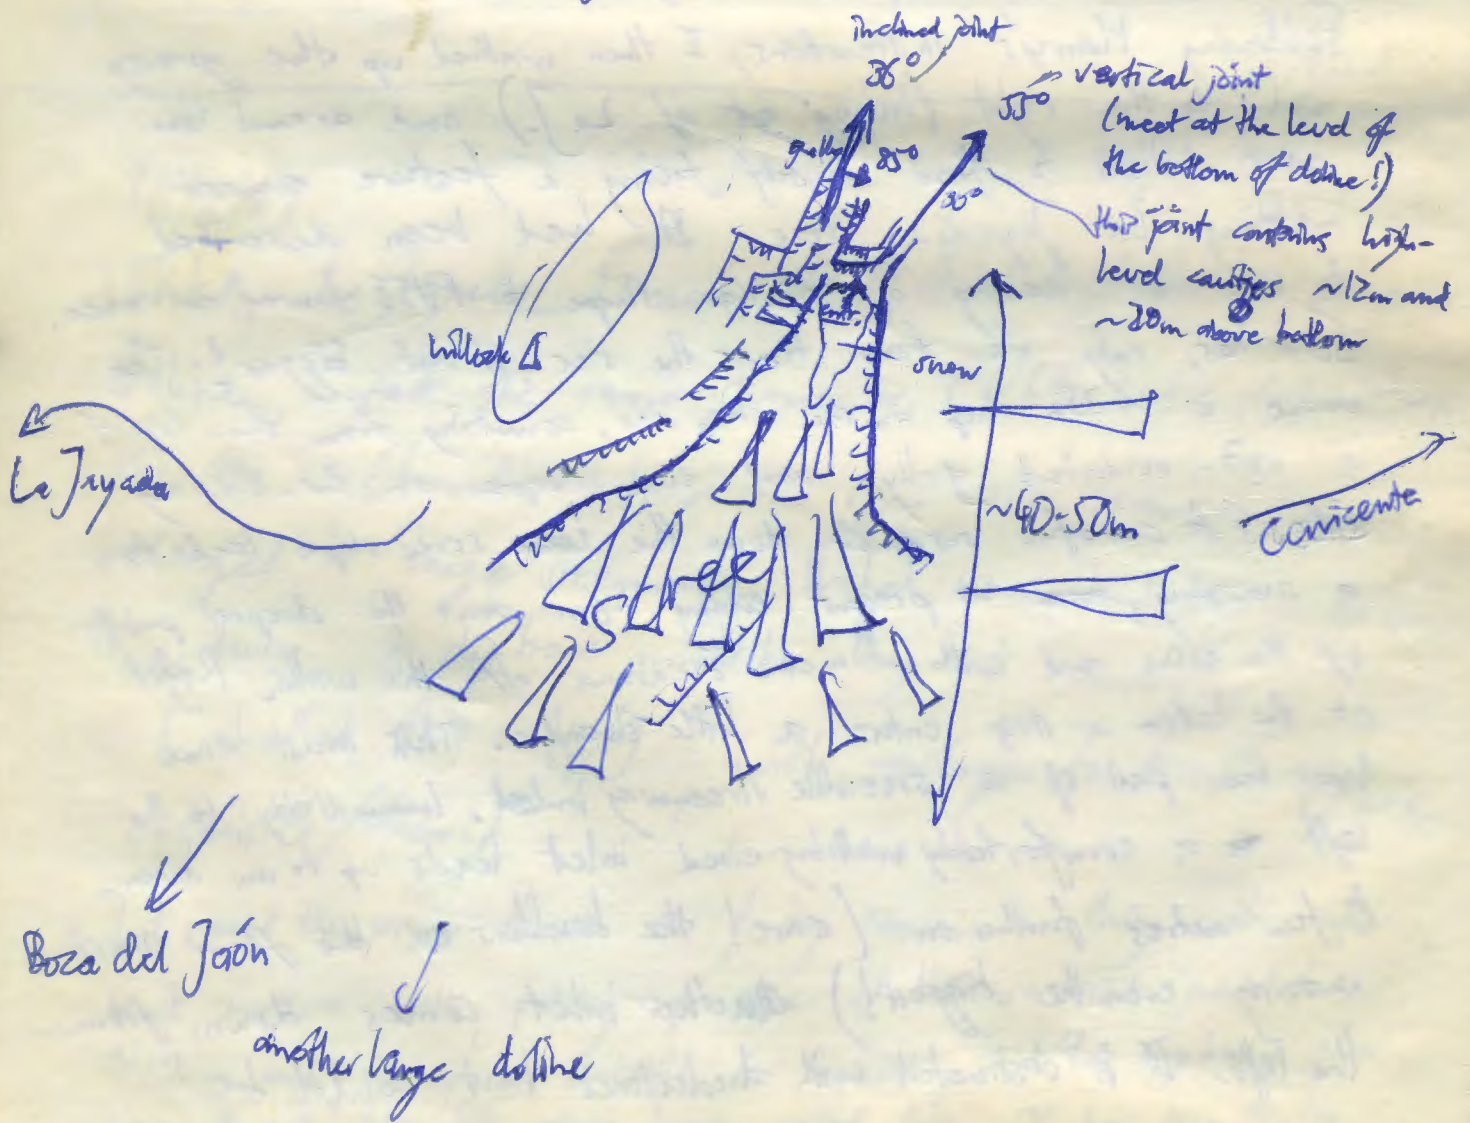 inclined joint
36°
55° vertical joint
(meet at the level of
the bottom of doline!)
gully
85°
this joint contains high-
level cavities ~12m and
~20m above bottom
hillock
entr.
snow
La Jayada
~40-50m
Cunicenta
Scree
Boca del Joón
another large doline